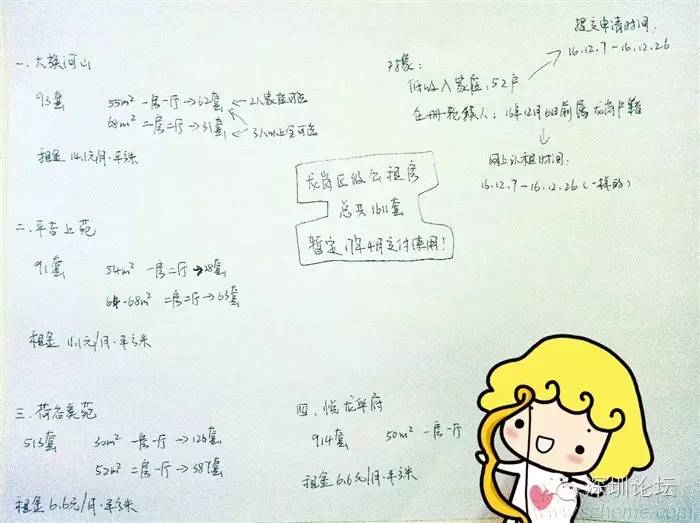 一. 大族河山
93套 55m² 一房一厅→62套 ←2人家庭可选
68m² 二房二厅→31套 3人以上全可选
租金 14.1元/月·平方米
对象:
低收入家庭, 52户
在册轮候人: 16年12月6日前属龙岗户籍
提交申请时间:
16.12.7－16.12.26
网上认租时间:
16.12.7－16.12.26 (一样的)
龙岗区级公租房
总共1611套
暂定17年4月交付使用!
二. 平吉上苑
91套 54m² 一房二厅→28套
64-68m² 二房二厅→63套
租金 11.1元/月·平方米
三. 荷谷美苑
513套 30m² 一房一厅→126套
52m² 二房一厅→387套
租金 6.6元/月·平方米
四. 悦龙华府
914套 50m² 一房一厅
租金 6.6元/月·平方米
深圳论坛
szhome.com